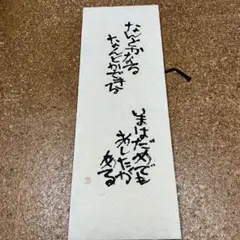 なんとかなる
なんとかできる
いまはだめでも
あしたが
ある